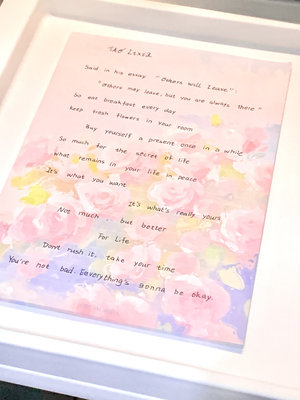 Tao Lixia
Said in his essay "Others Will Leave":
"Others may leave, but you are always there"
So eat breakfast every day
Keep fresh flowers in your room
Buy yourself a present once in a while
So much for the secret of life
What remains in your life in peace
It's what you want
It's what's really yours
Not much, but better
For Life
Don't rush it, take your time
You're not bad. Everything's gonna be okay.